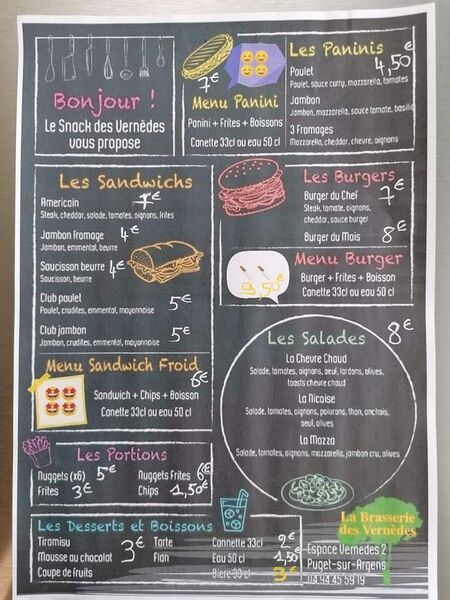 Bonjour !
Le Snack des Vernèdes
vous propose
7€
Menu Panini
Panini + Frites + Boissons
Canette 33cl ou eau 50 cl
Les Paninis
4,50€
Poulet
Poulet, sauce curry, mozzarella, tomates
Jambon
Jambon, mozzarella, sauce tomate, basilic
3 Fromages
Mozzarella, cheddar, chevre, oignons
Les Sandwichs
Americain
€
Steak, cheddar, salade, tomates, oignons, frites
Jambon fromage 4€
Jambon, emmental, beurre
Saucisson beurre 4€
Saucisson, beurre
Club poulet 5€
Poulet, crudites, emmental, mayonnaise
Club jambon 5€
Jambon, crudites, emmental, mayonnaise
Menu Sandwich Froid
6€
Sandwich + Chips + Boisson
Canette 33cl ou eau 50 cl
Les Burgers
Burger du Chef 7€
Steak, tomate, oignons,
cheddar, sauce burger
Burger du Mois 8€
Menu Burger
9,50€
Burger + Frites + Boisson
Canette 33cl ou eau 50 cl
Les Salades 8€
La Chevre Chaud
Salade, tomates, oignons, oeuf, lardons, olives,
toasts chevre chaud
La Nicoise
Salade, tomates, oignons, poivrons, thon, anchois,
oeuf, olives
La Mozza
Salade, tomates, oignons, mozzarella, jambon cru, olives
Les Portions
Nuggets (x6) 5€ Nuggets Frites 6€
Frites 3€ Chips 1,50€
Les Desserts et Boissons
Tiramisu Tarte Cannette 33cl 2€
Mousse au chocolat 3€ Flan Eau 50 cl 1,50€
Coupe de fruits Biere 33 cl 3€
La Brasserie
des Vernèdes
Espace Vernedes 2
Puget-sur-Argens
04 94 45 59 19